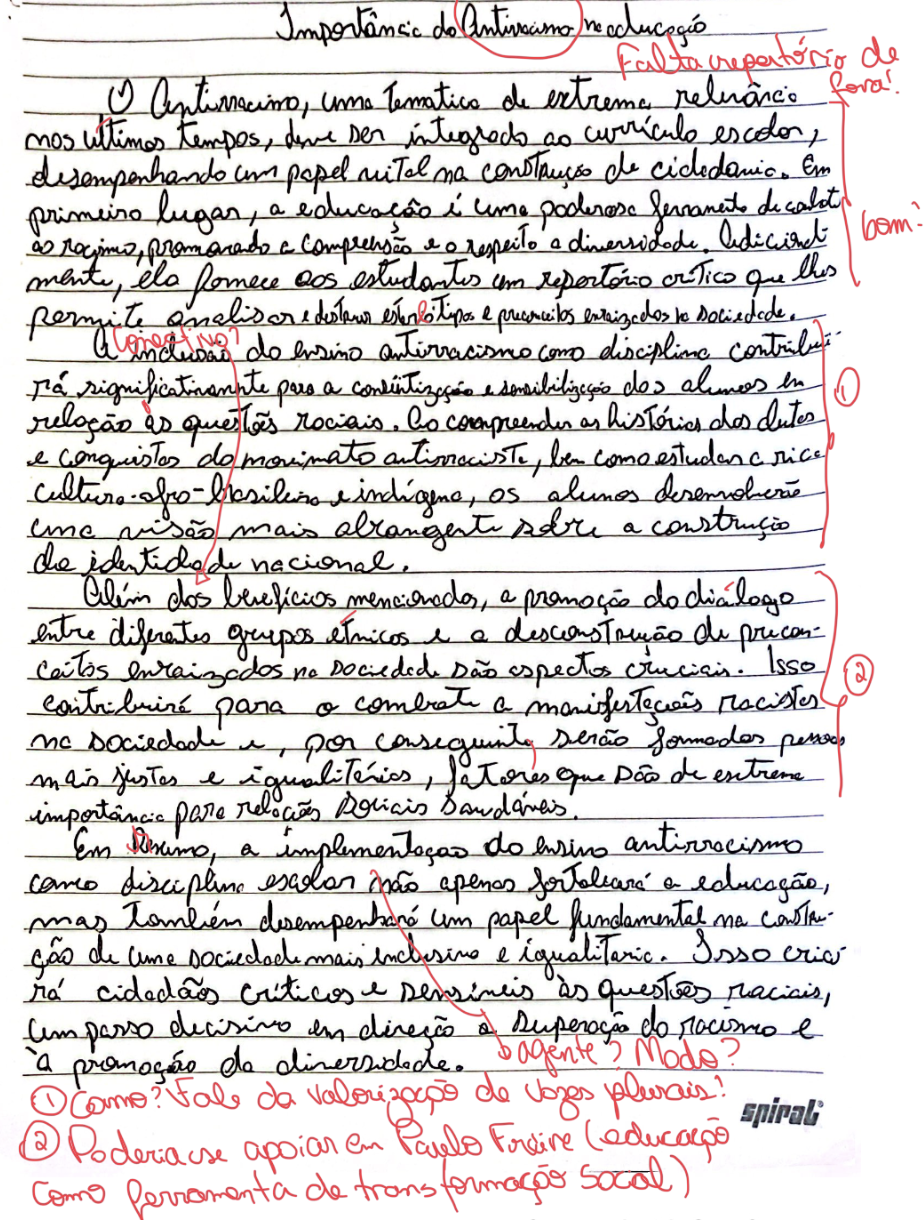 Importância do Antirracismo na educação
Falta repertório de
fora!
O Antirracismo, uma tematica de extrema relevância
nos últimos tempos, deve ser integrado ao currículo escolar,
desempenhando um papel vital na construção da cidadania. Em
primeiro lugar, a educação é uma poderosa ferramenta de combate
bom!
ao racismo, promovendo a compreensão e o respeito a diversidade. Adicional
mente, ela fornece aos estudantes um repertório crítico que lhes
permite analisar e destruir estereótipos e preconceitos enraizados na sociedade.
Conectivo?
A inclusão do ensino antirracismo como disciplina contribui
rá significativamente para a conscientização e sensibilização dos alunos em
①
relação às questões raciais. Ao compreender as histórias das lutas
e conquistas do movimento antirracista, bem como estudar a rica
cultura-afro-brasileira e indígena, os alunos desenvolverão
uma visão mais abrangente sobre a construção
da identidade nacional.
Além dos benefícios mencionados, a promoção do diálogo
entre diferentes grupos étnicos e a desconstrução de precon-
ceitos enraizados na sociedade são aspectos cruciais. Isso
②
contribuirá para o combate a manifestações racistas
na sociedade e, por conseguinte, serão formadas pessoas
mais justas e igualitárias, fatores que são de extrema
importância para relações sociais saudáveis.
Em Resumo, a implementação do ensino antirracismo
como disciplina escolar não apenas fortalecará a educação,
mas também desempenhará um papel fundamental na constru-
ção de uma sociedade mais inclusiva e igualitaria. Isso cria
rá cidadãos críticos e sensíveis às questões raciais,
um passo decisivo em direção a superação do racismo e
à promoção da diversidade.
agente? Modo?
① Como? Fale da valorização de vozes plurais!
spiral
② Poderia se apoiar em Paulo Freire (educação
como ferramenta de transformação social)